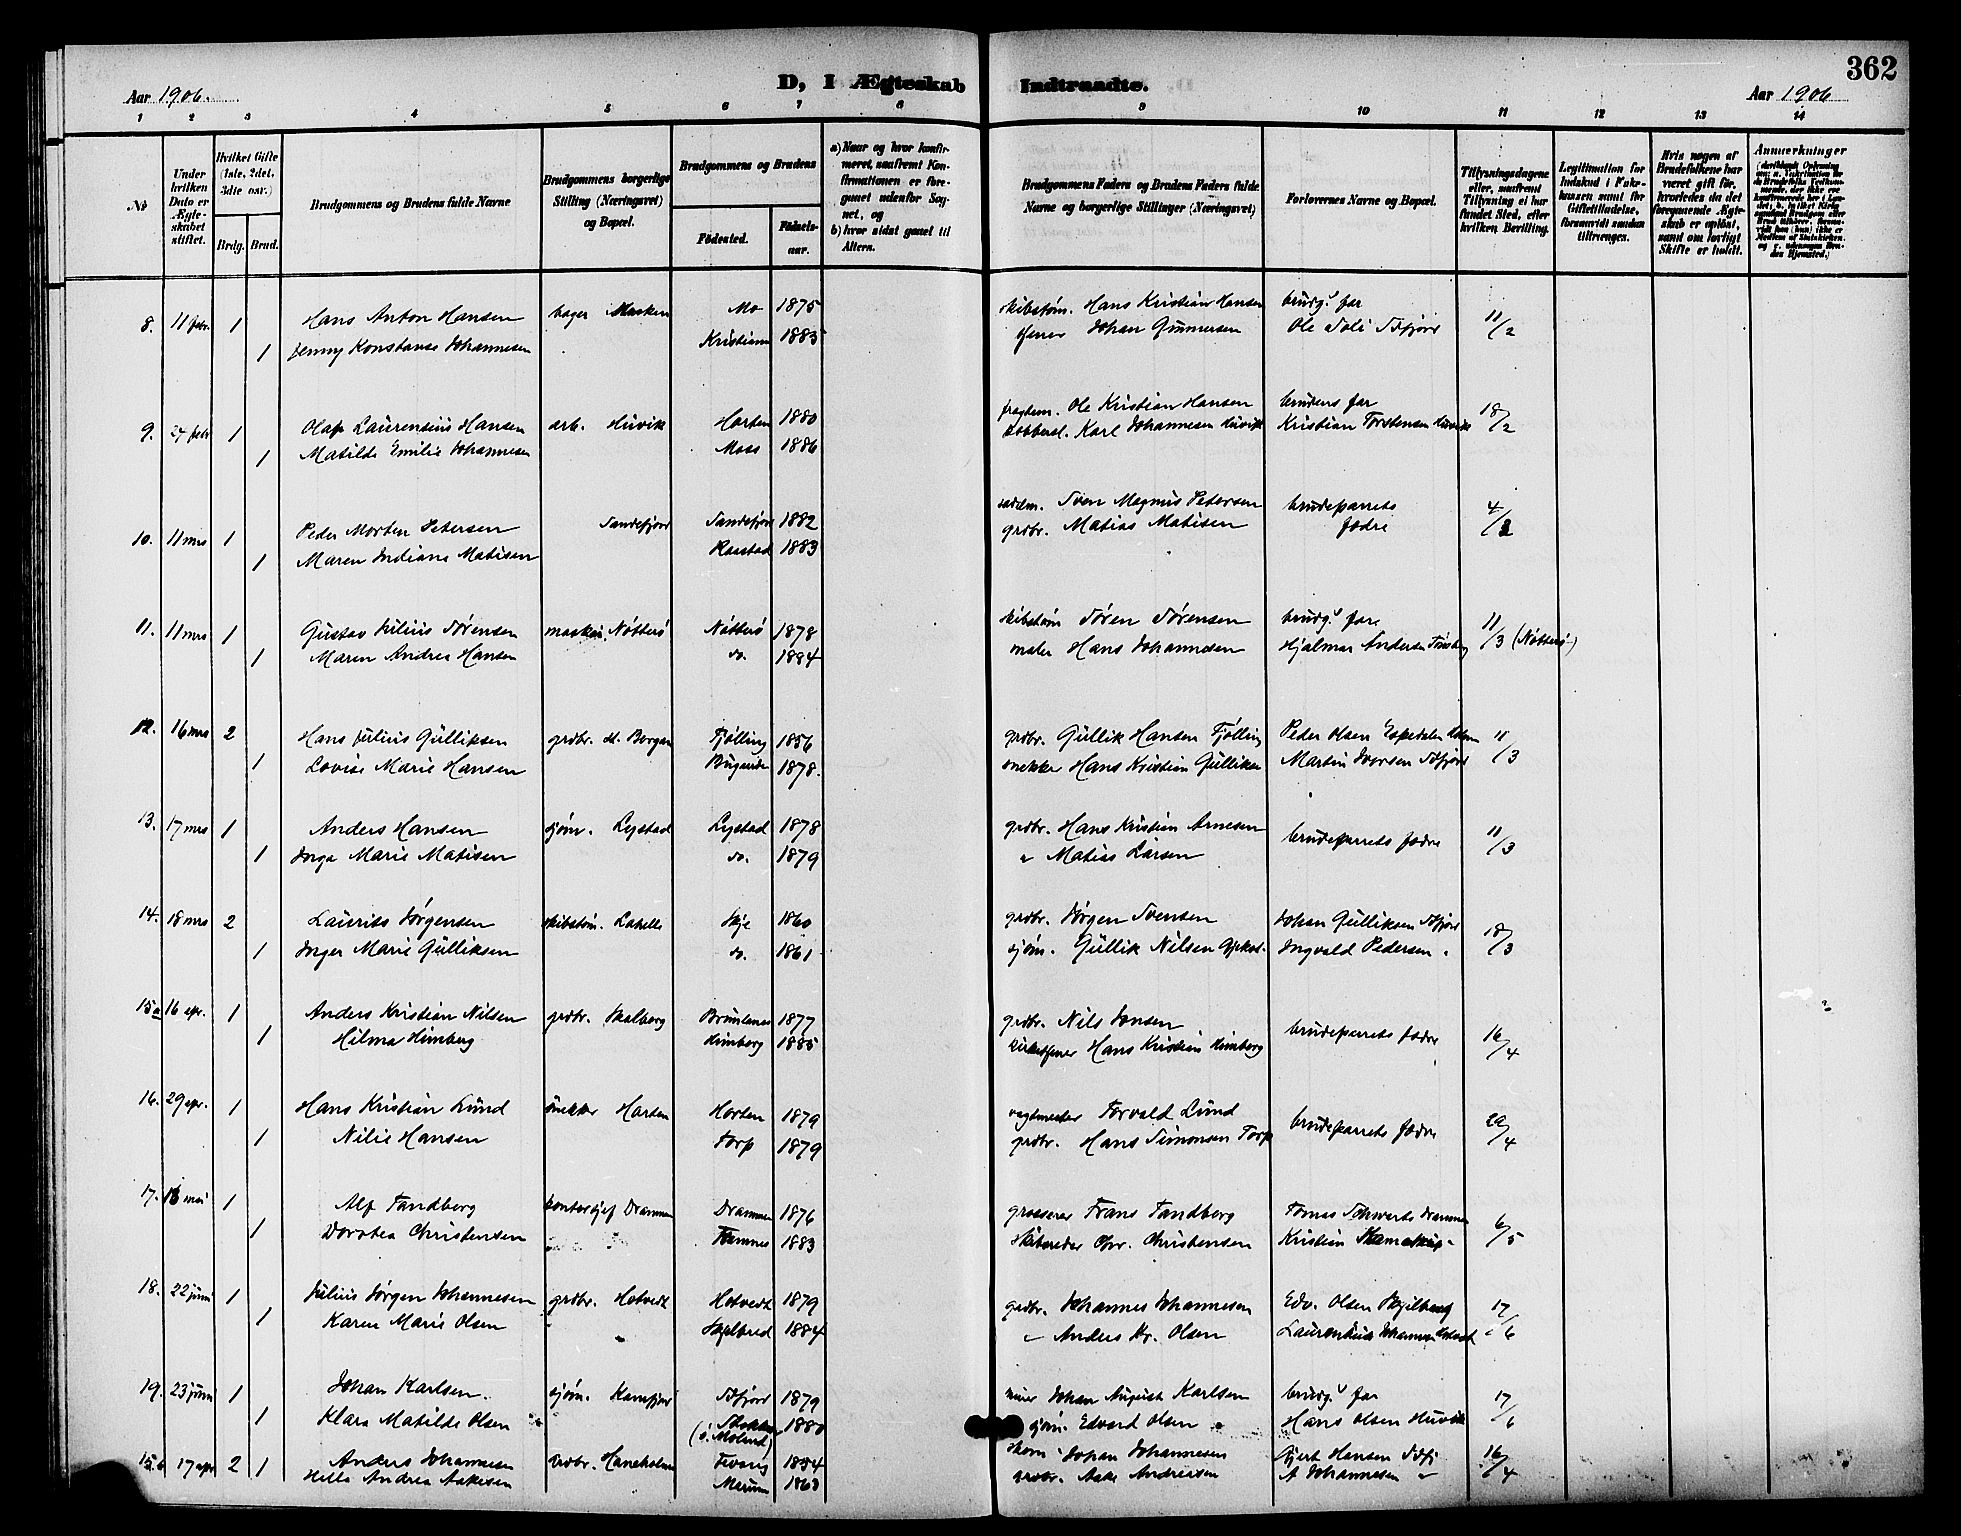 362
D, I Ægteskab Indtraadte.
Aar 1906.
Aar 1906
1 2 3 4 5 6 7 8 9 10 11 12 13 14
№
Under hvilken Dato er Ægteskabet stiftet.
Hvilket Gifte (1ste, 2det, 3die osv.)
Brdg. Brud.
Brudgommens og Brudens fulde Navne
Brudgommens borgerlige Stilling (Næringsvei) og Bopæl.
Brudgommens og Brudens
Fødested. Fødselsaar.
a) Naar og hvor konfirmeret, saafremt Konfirmationen er foregaaet udenfor Sognet, og
b) hvor sidst gaaet til Alters.
Brudgommens Faders og Brudens Faders fulde Navne og borgerlige Stillinger (Næringsvei)
Forlovernes Navne og Bopæl.
Tillysningsdagene eller, saafremt Tillysning ei har fundet Sted, efter hvilken Bevilling.
Legitimation for Indskud i Enkekassen samt for Giftetilladelse, forsaavidt saadan tiltrænges.
Hvis nogen af Brudefolkene har været gift før, hvorledes da det foregaaende Ægteskab er opløst, samt om lovligt Skifte er holdt.
Anmærkninger
8. 11 febr. 1 Hans Anton Hansen bager Masken Mo 1875 skibstøm. Hans Kristian Hansen brudg.s far 11/2
1 Jenny Konstanse Johannesen Kristiania 1883 Johan Gunnersen Ole Soli Sdfjord
9. 24 febr 1 Olaf Laurensius Hansen arb. Huvik Horten 1880 fragtem. Ole Kristian Hansen brudens far 18/2
1 Matilde Emilie Johannesen Moss 1886 Karl Johannesen Huvik Kristian Torstensen Huvik
10. 11 mrs 1 Peder Morten Petersen Sandefjord Sandefjord 1882 Sven Magnus Petersen brudeparrets 4/2
1 Maren Indiana Matisen Raastad 1883 grdbr. Matias Matisen fædre
11. 11 mrs 1 Gustav Julius Sørensen maskin. Nøtterø Nøtterø 1878 skibstøm Søren Sørensen brudg.s far 11/3 (Nøtterø)
1 Maren Andrea Hansen do. 1884 maler Hans Johannesen Hjalmar Andersen Tønsberg
12. 16 mrs 2 Hans Julius Gulliksen grdbr. st. Bergan Tjølling 1856 grdbr. Gullik Hansen Tjølling Peder Olsen 11/3
1 Lovise Marie Hansen Bugaarden 1878. snekker Hans Kristian Gulliksen Martin Iversen Sdfjord
13. 17 mrs 1 Anders Hansen sjøm. Lystad Lystad 1878 grdbr. Hans Kristian Arnesen brudeparrets fædre 11/3
1 Inga Marie Matisen do. 1879 " Matias Larsen
14. 18 mrs 2 Laurits Jørgensen skibstøm. Lahelle Skje 1860 grdbr. Jørgen Svensen Johan Gulliksen Sdfjord 18/3
1 Inger Marie Gulliksen do. 1861 sjøm. Gullik Nilsen Ingvald Pedersen "
15a 16 apr. 1 Anders Kristian Nilsen grdbr. Skalberg Brunlanes 1877 grdbr. Nils Jensen brudeparrets fædre 16/4
1 Hilma Himberg Himberg 1885 kirketjener Hans Kristian Himberg
16. 29 apr. 1 Hans Kristian Lund snekker Horten Horten 1879 vagtmester Torvald Lund brudeparrets fædre 29/4
1 Nilie Hansen Torp 1879 grdbr. Hans Simonsen Torp
17. 16 mai 1 Alf Tandberg kontorsjef Drammen Drammen 1876 grosserer Frans Tandberg Tomas Schwartz Drammen 6/5
1 Dorotea Christensen Framnes 1883 skibsreder Chr. Christensen Kristian
18. 22 juni 1 Julius Jørgen Johannesen grdbr. Hotvedt Hotvedt 1879 grdbr. Johannes Johannesen Edv. Olsen 17/6
1 Karen Marie Olsen " Skjelbred 1884 " Anders Kr. Olsen Laurentius Johannesen Hotvedt
19. 23 juni 1 Johan Karlsen. sjøm. Sdfjord 1879 murer Johan August Karlsen brudg.s far 17/6
1 Klara Matilde Olsen Stokke 1880 sjøm. Edvard Olsen Hans Olsen Huvik
15b 17 apr 2 1 Anders Johannesen grdbr. Haneholmen 1854 Johan Johannesen Gjert Hansen Sdfj 16/4
Helle Andrea Aakesen Merum 1863 grdbr. Aake Andersen A Johannesen "